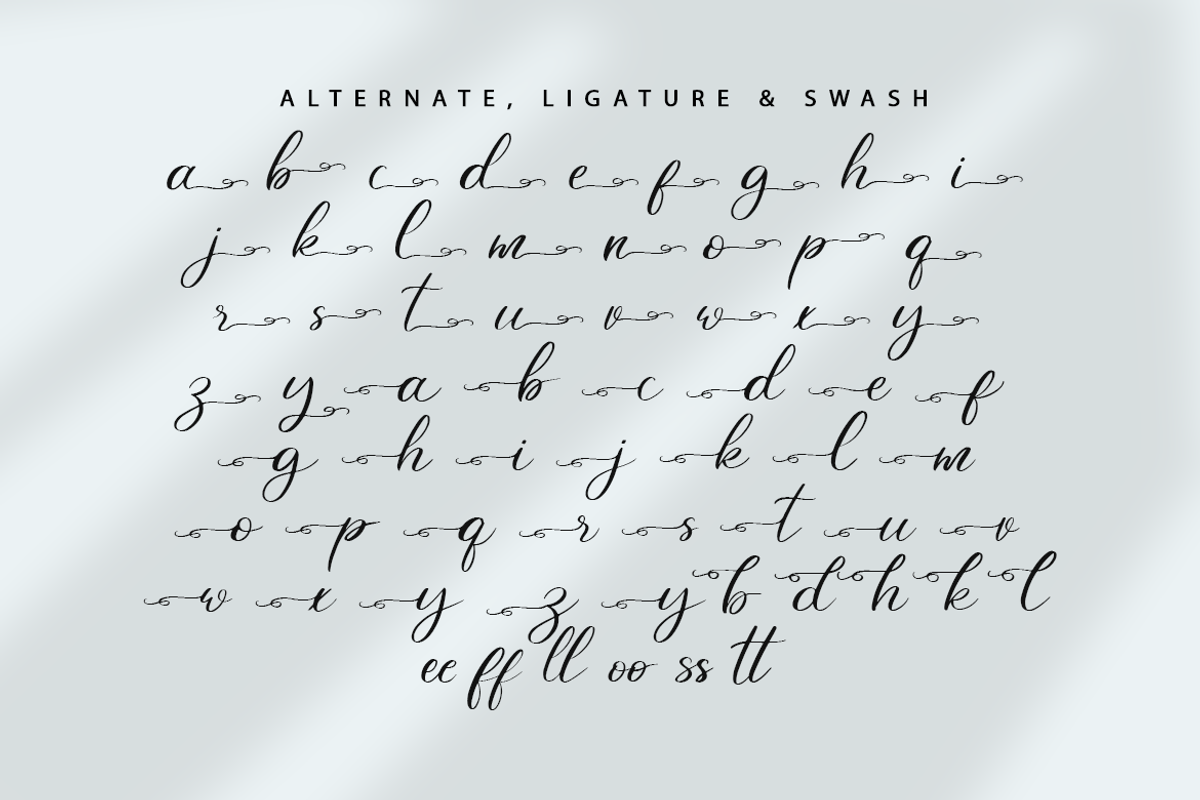 ALTERNATE, LIGATURE & SWASH
a b c d e f g h i
j k l m n o p q
r s t u v w x y
z y a b c d e f
g h i j k l m
o p q r s t u v
w x y z y b d h k l
ee ff ll oo ss tt